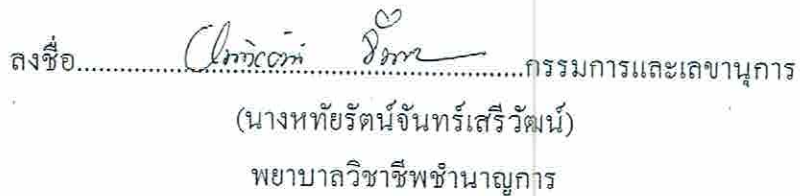 ลงชื่อ.....................................................................กรรมการและเลขานุการ
(นางหทัยรัตน์จันทร์เสรีวัฒน์)
พยาบาลวิชาชีพชำนาญการ